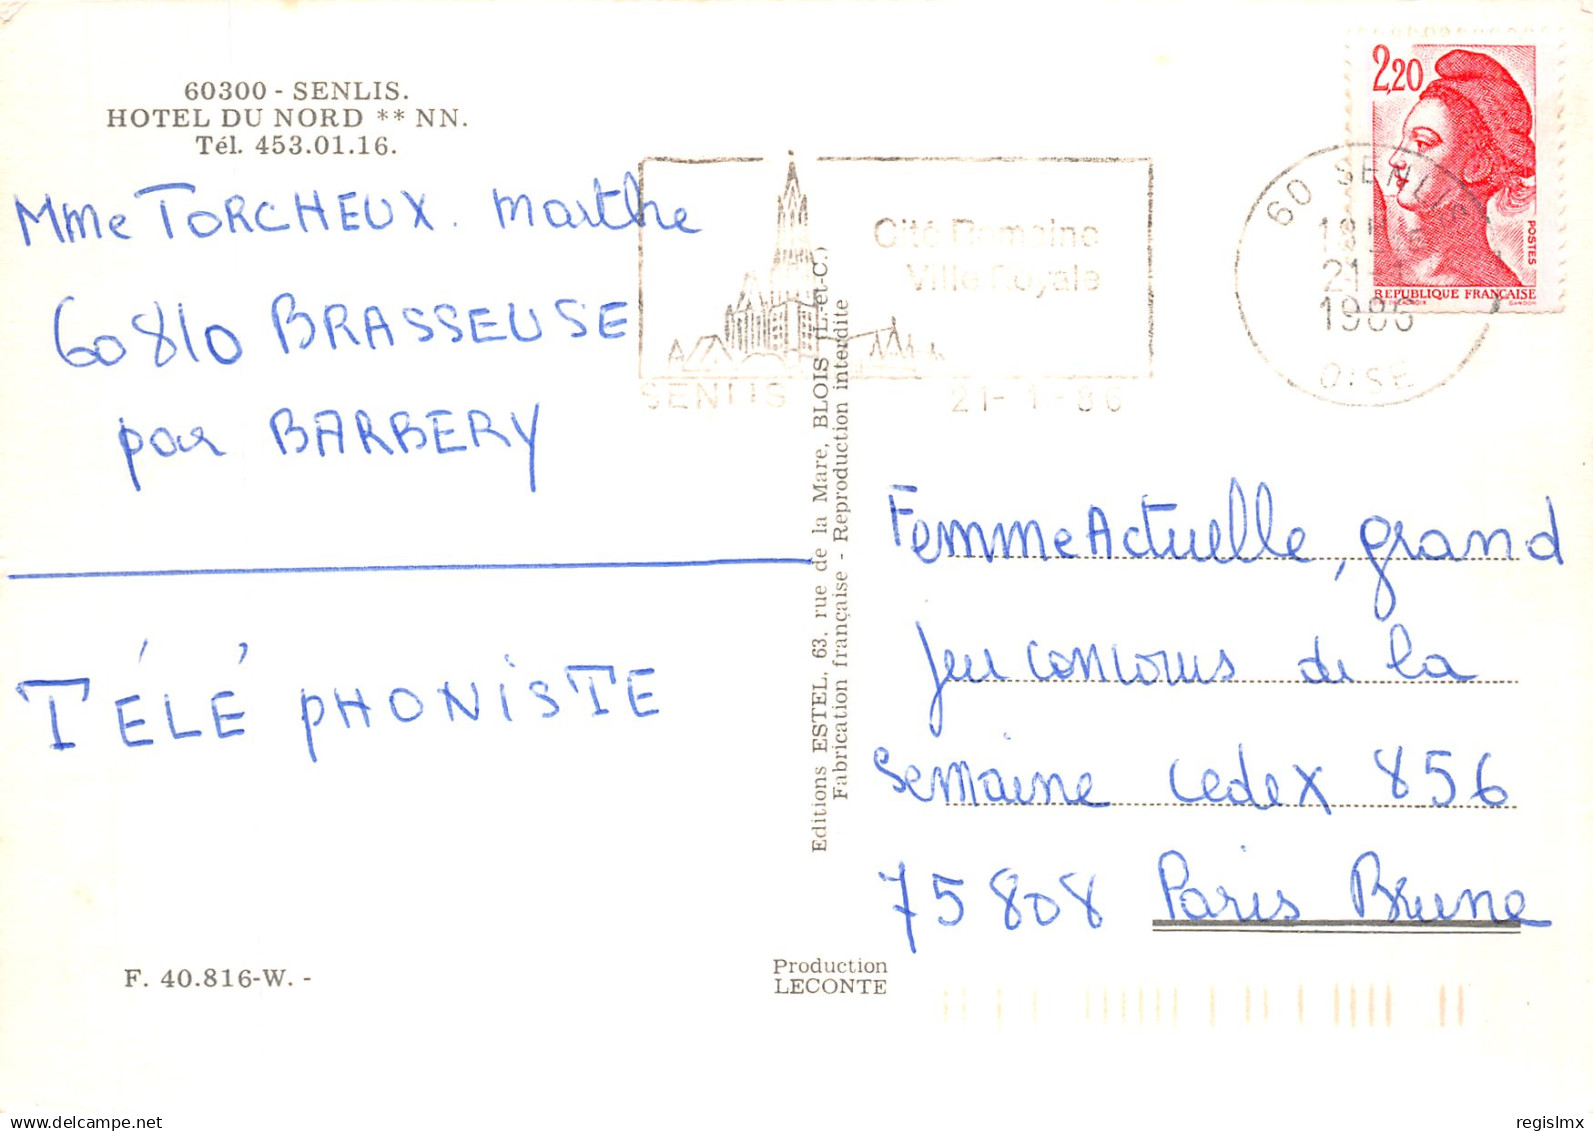 60300 - SENLIS.
HOTEL DU NORD ** NN.
Tél. 453.01.16.
Mme TORCHEUX. Marthe
60810 BRASSEUSE
par BARBERY
TÉLÉPHONISTE
F. 40.816-W. -
Cité Romaine
Ville Royale
SENLIS 21-1-86
Editions ESTEL, 63, rue de la Mare, BLOIS (L.-et-C.)
Fabrication française - Reproduction interdite
Production
LECONTE
2,20
POSTES
REPUBLIQUE FRANÇAISE
GANDON
60 SENLIS
18H
21-1
1986
OISE
Femme Actuelle, grand
jeu concours de la
semaine cedex 856
75808 Paris Brune
delcampe.net
regislmx